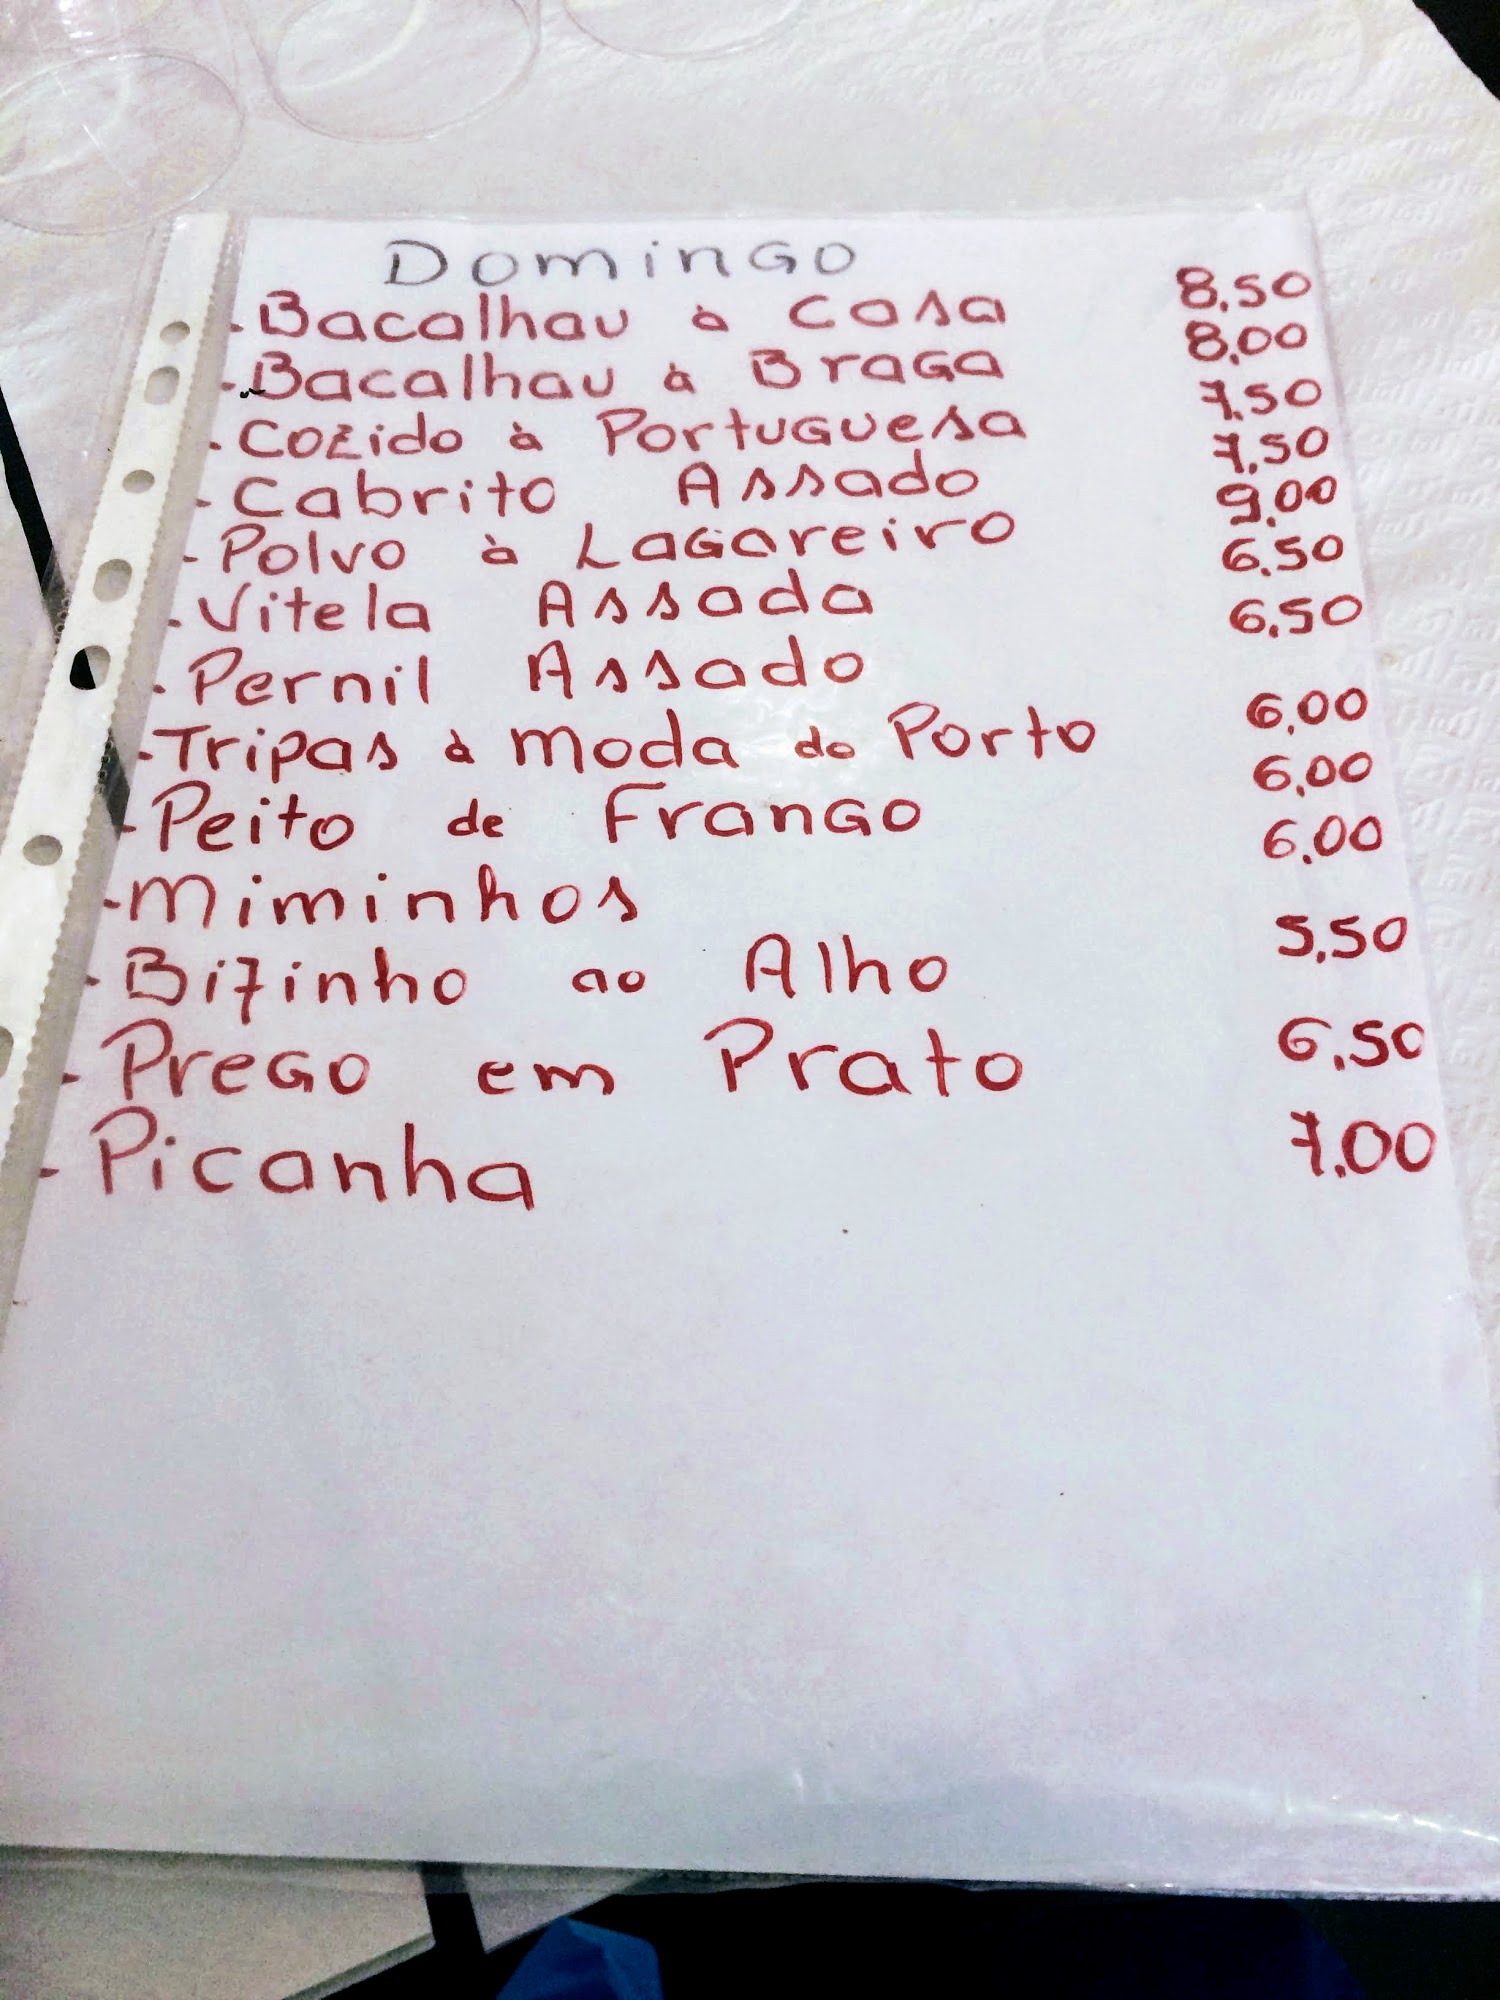 Domingo
- Bacalhau à Casa 8,50
- Bacalhau à Braga 8,00
- Cozido à Portuguesa 7,50
- Cabrito Assado 7,50
- Polvo à Lagareiro 9,00
- Vitela Assada 6,50
- Pernil Assado 6,50
- Tripas à moda do Porto 6,00
- Peito de Frango 6,00
- Miminhos 6,00
- Bifinho ao Alho 5,50
- Prego em Prato 6,50
- Picanha 7,00